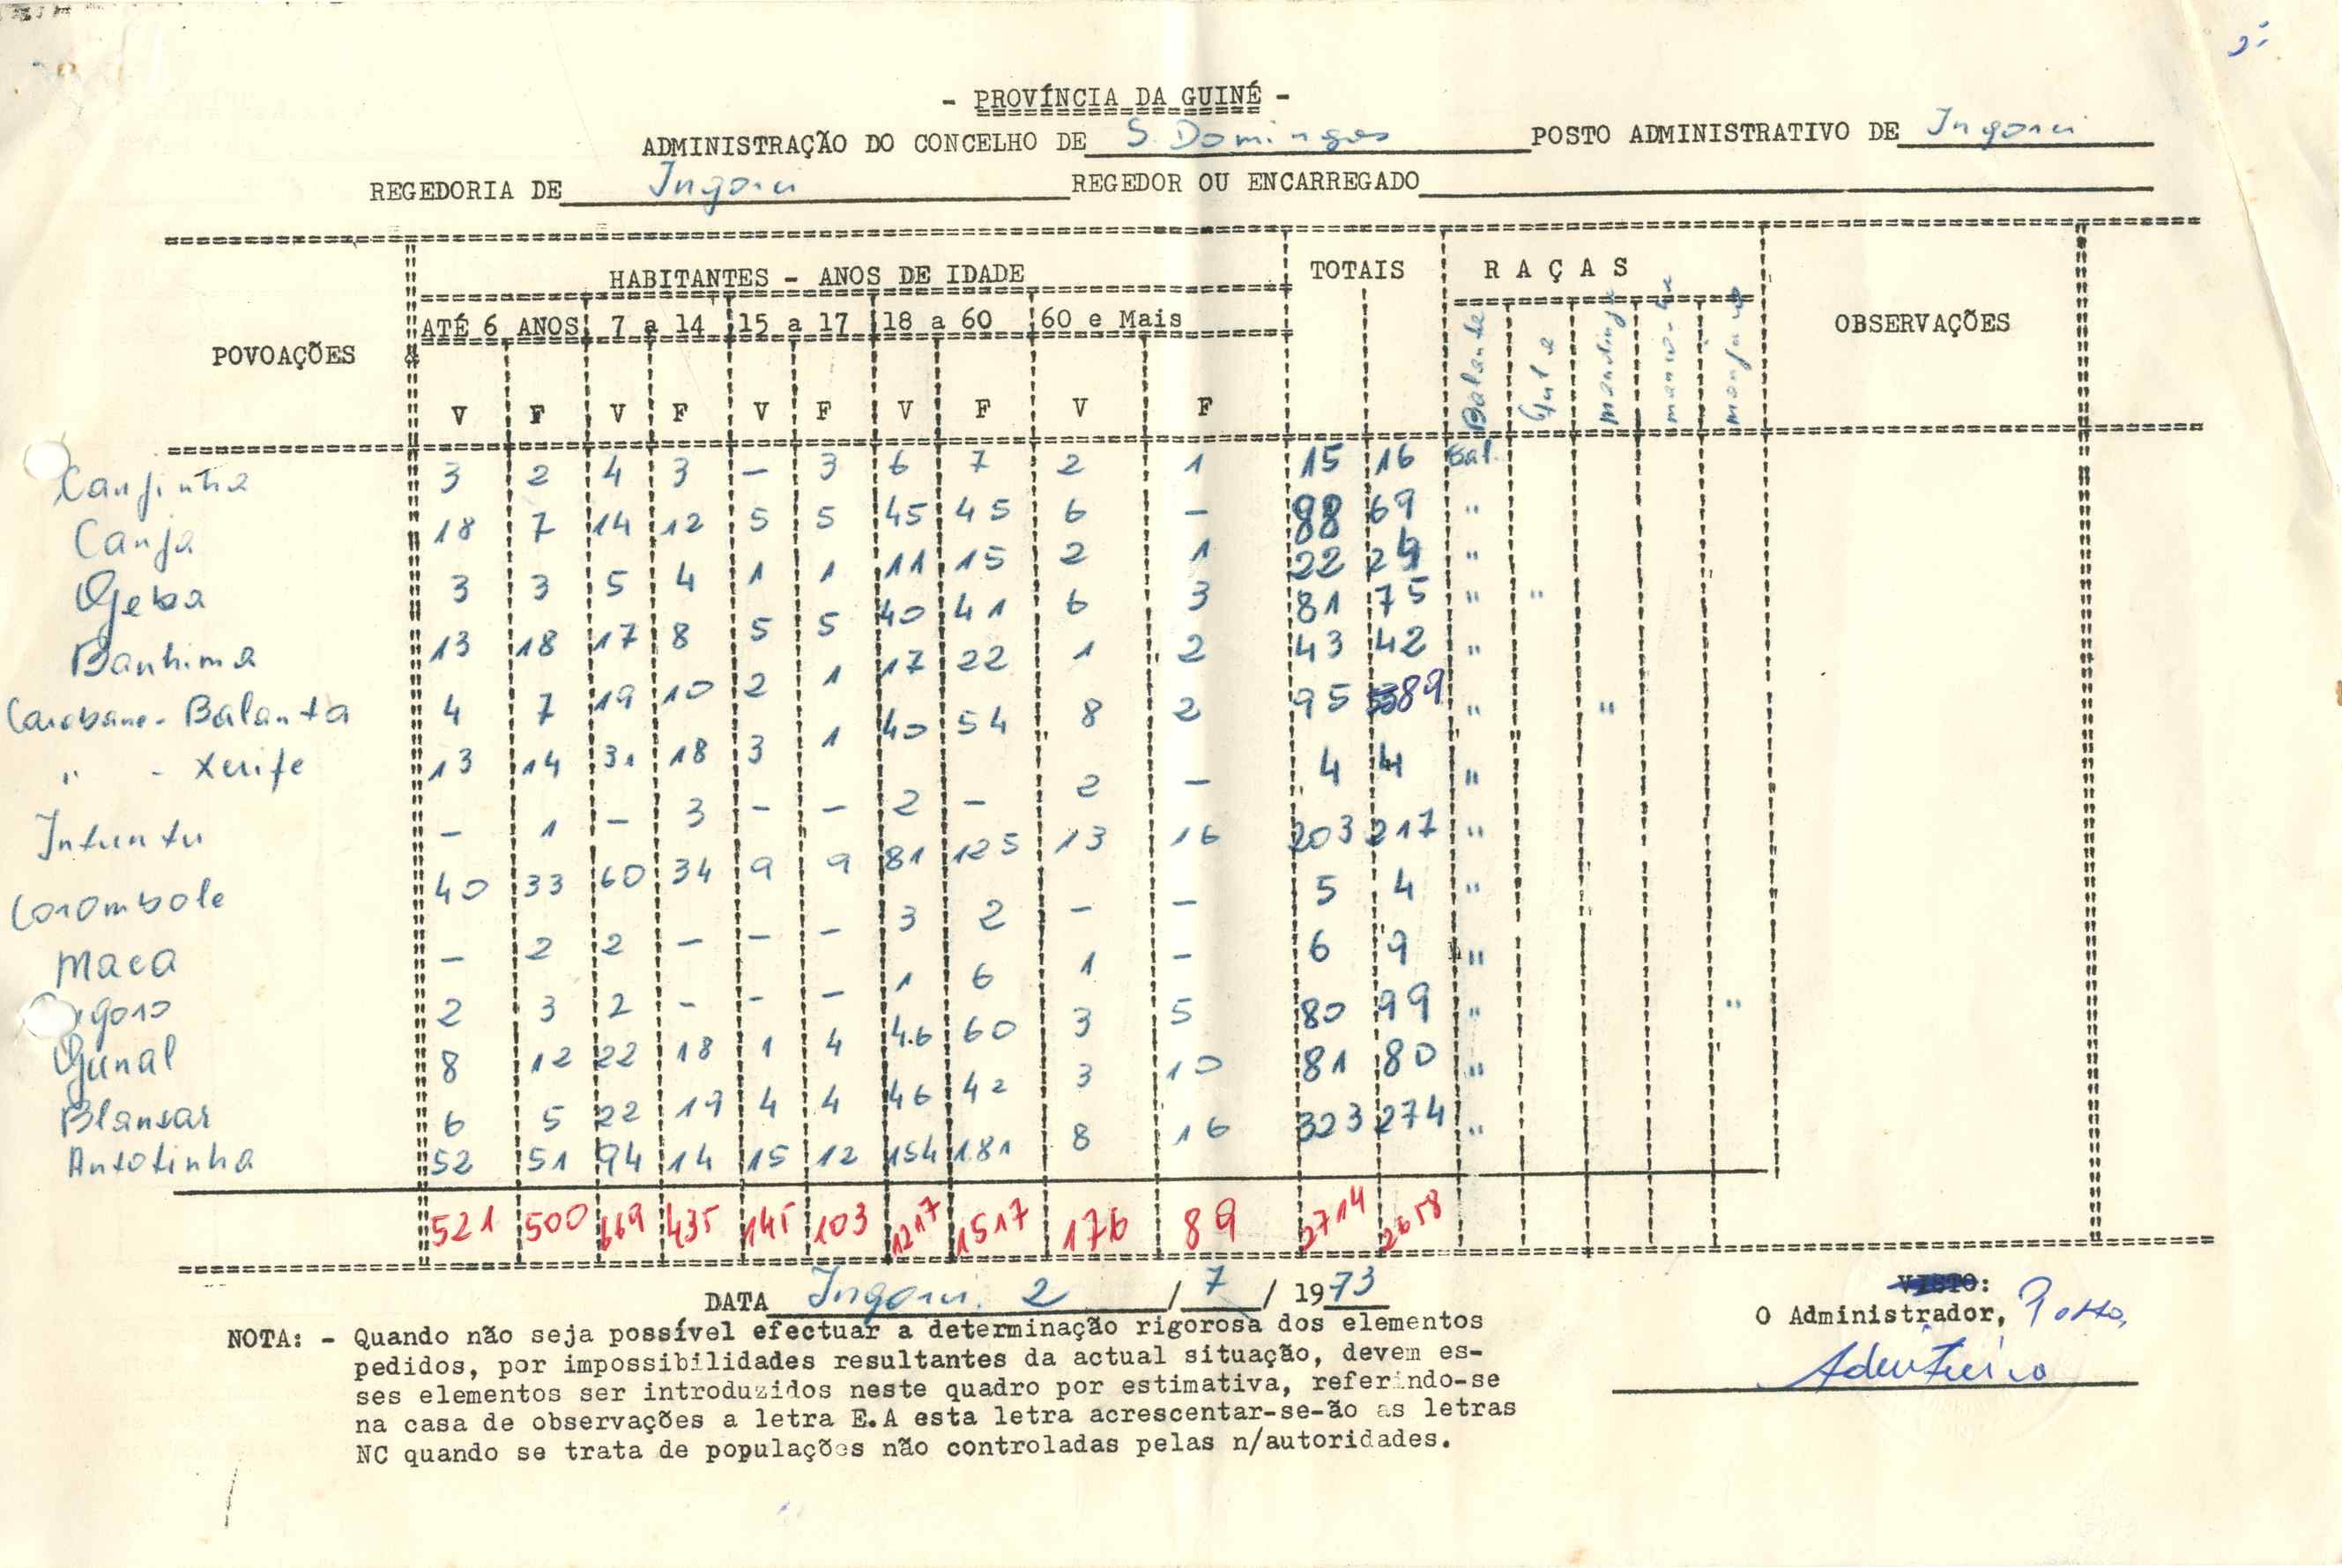 - PROVÍNCIA DA GUINÉ -
ADMINISTRAÇÃO DO CONCELHO DE S. Domingos POSTO ADMINISTRATIVO DE Ingoré
REGEDORIA DE Ingoré REGEDOR OU ENCARREGADO
POVOAÇÕES HABITANTES - ANOS DE IDADE TOTAIS RAÇAS OBSERVAÇÕES
ATÉ 6 ANOS 7 a 14 15 a 17 18 a 60 60 e Mais
Balante
V F V F V F V F V F
3 2 4 3 — 3 6 7 2 1 15 16 Bal.
Canja 18 7 14 12 5 5 45 45 6 — 88 69 "
Geba 3 3 5 4 1 1 11 15 2 1 22 24 "
Banhima 13 18 17 8 5 5 40 41 6 3 81 75 " "
Balanta 4 7 19 10 2 1 17 22 1 2 43 42 "
" - Xerife 13 14 31 18 3 1 40 54 8 2 95 89 " "
— 1 — 3 — — 2 — 2 — 4 4 "
40 33 60 34 9 9 81 125 13 16 203 217 "
Maca — 2 2 — — — 3 2 — — 5 4 "
2 3 2 — — — 1 6 1 — 6 9 "
8 12 22 18 1 4 46 60 3 5 80 99 " "
6 5 22 19 4 4 46 42 3 10 81 80 "
Antotinha 52 51 94 14 15 12 154 181 8 16 323 274 "
521 500 669 435 145 103 1217 1517 176 89 2714 2658
DATA Ingoré. 2 / 7 / 1973
VISTO:
O Administrador, Posto,
NOTA: - Quando não seja possível efectuar a determinação rigorosa dos elementos
pedidos, por impossibilidades resultantes da actual situação, devem es-
ses elementos ser introduzidos neste quadro por estimativa, referindo-se
na casa de observações a letra E.A esta letra acrescentar-se-ão as letras
NC quando se trata de populações não controladas pelas n/autoridades.